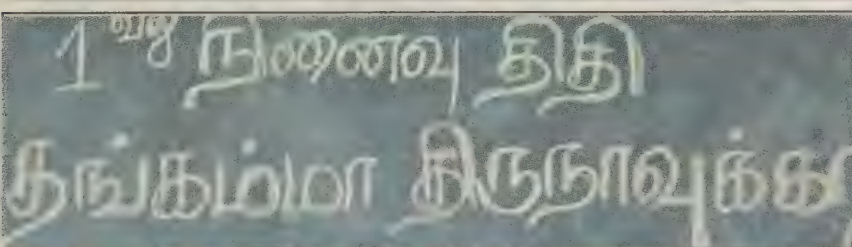 1வது நினைவு திதி
தங்கம்மா திருநாவுக்க